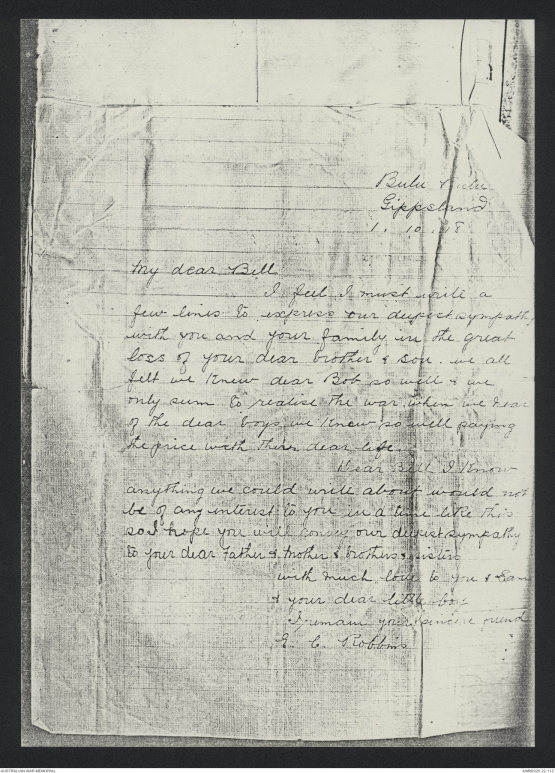 Bulu Bulu
Gippsland
1. 10. 18.
My dear Bell
I feel I must write a
few lines to express our deepest sympathy
with you and your family in the great
loss of your dear brother & son. we all
felt we knew dear Bob so well & we
only seem to realise the war when we hear
of the dear boys we knew so well paying
the price with their dear life.
Dear Bell I know
anything we could write about would not
be of any interest to you in a time like this
so I hope you will convey our deepest sympathy
to your dear Father & Mother & brothers & sisters
with much love to you & Sam
& your dear little boy
I remain your sincere friend
E. C. Robbins
AUSTRALIAN WAR MEMORIAL